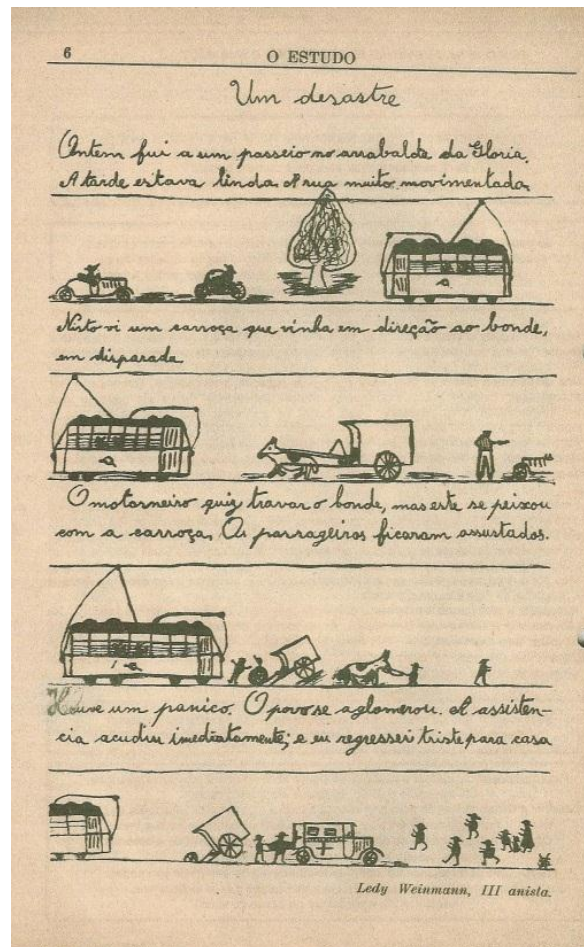 6
O ESTUDO
Um desastre
Ontem fui a um passeio no arrabalde da Gloria.
A tarde estava linda. A rua muito movimentada.
Nisto vi um carroça que vinha em direção ao bonde,
em disparada
O motorneiro quiz travar o bonde, mas este se peixou
com a carroça. Os passageiros ficaram assustados.
Houve um panico. O povo se aglomerou. A assisten-
cia acudiu imediatamente; e eu regressei triste para casa
Ledy Weinmann, III anista.